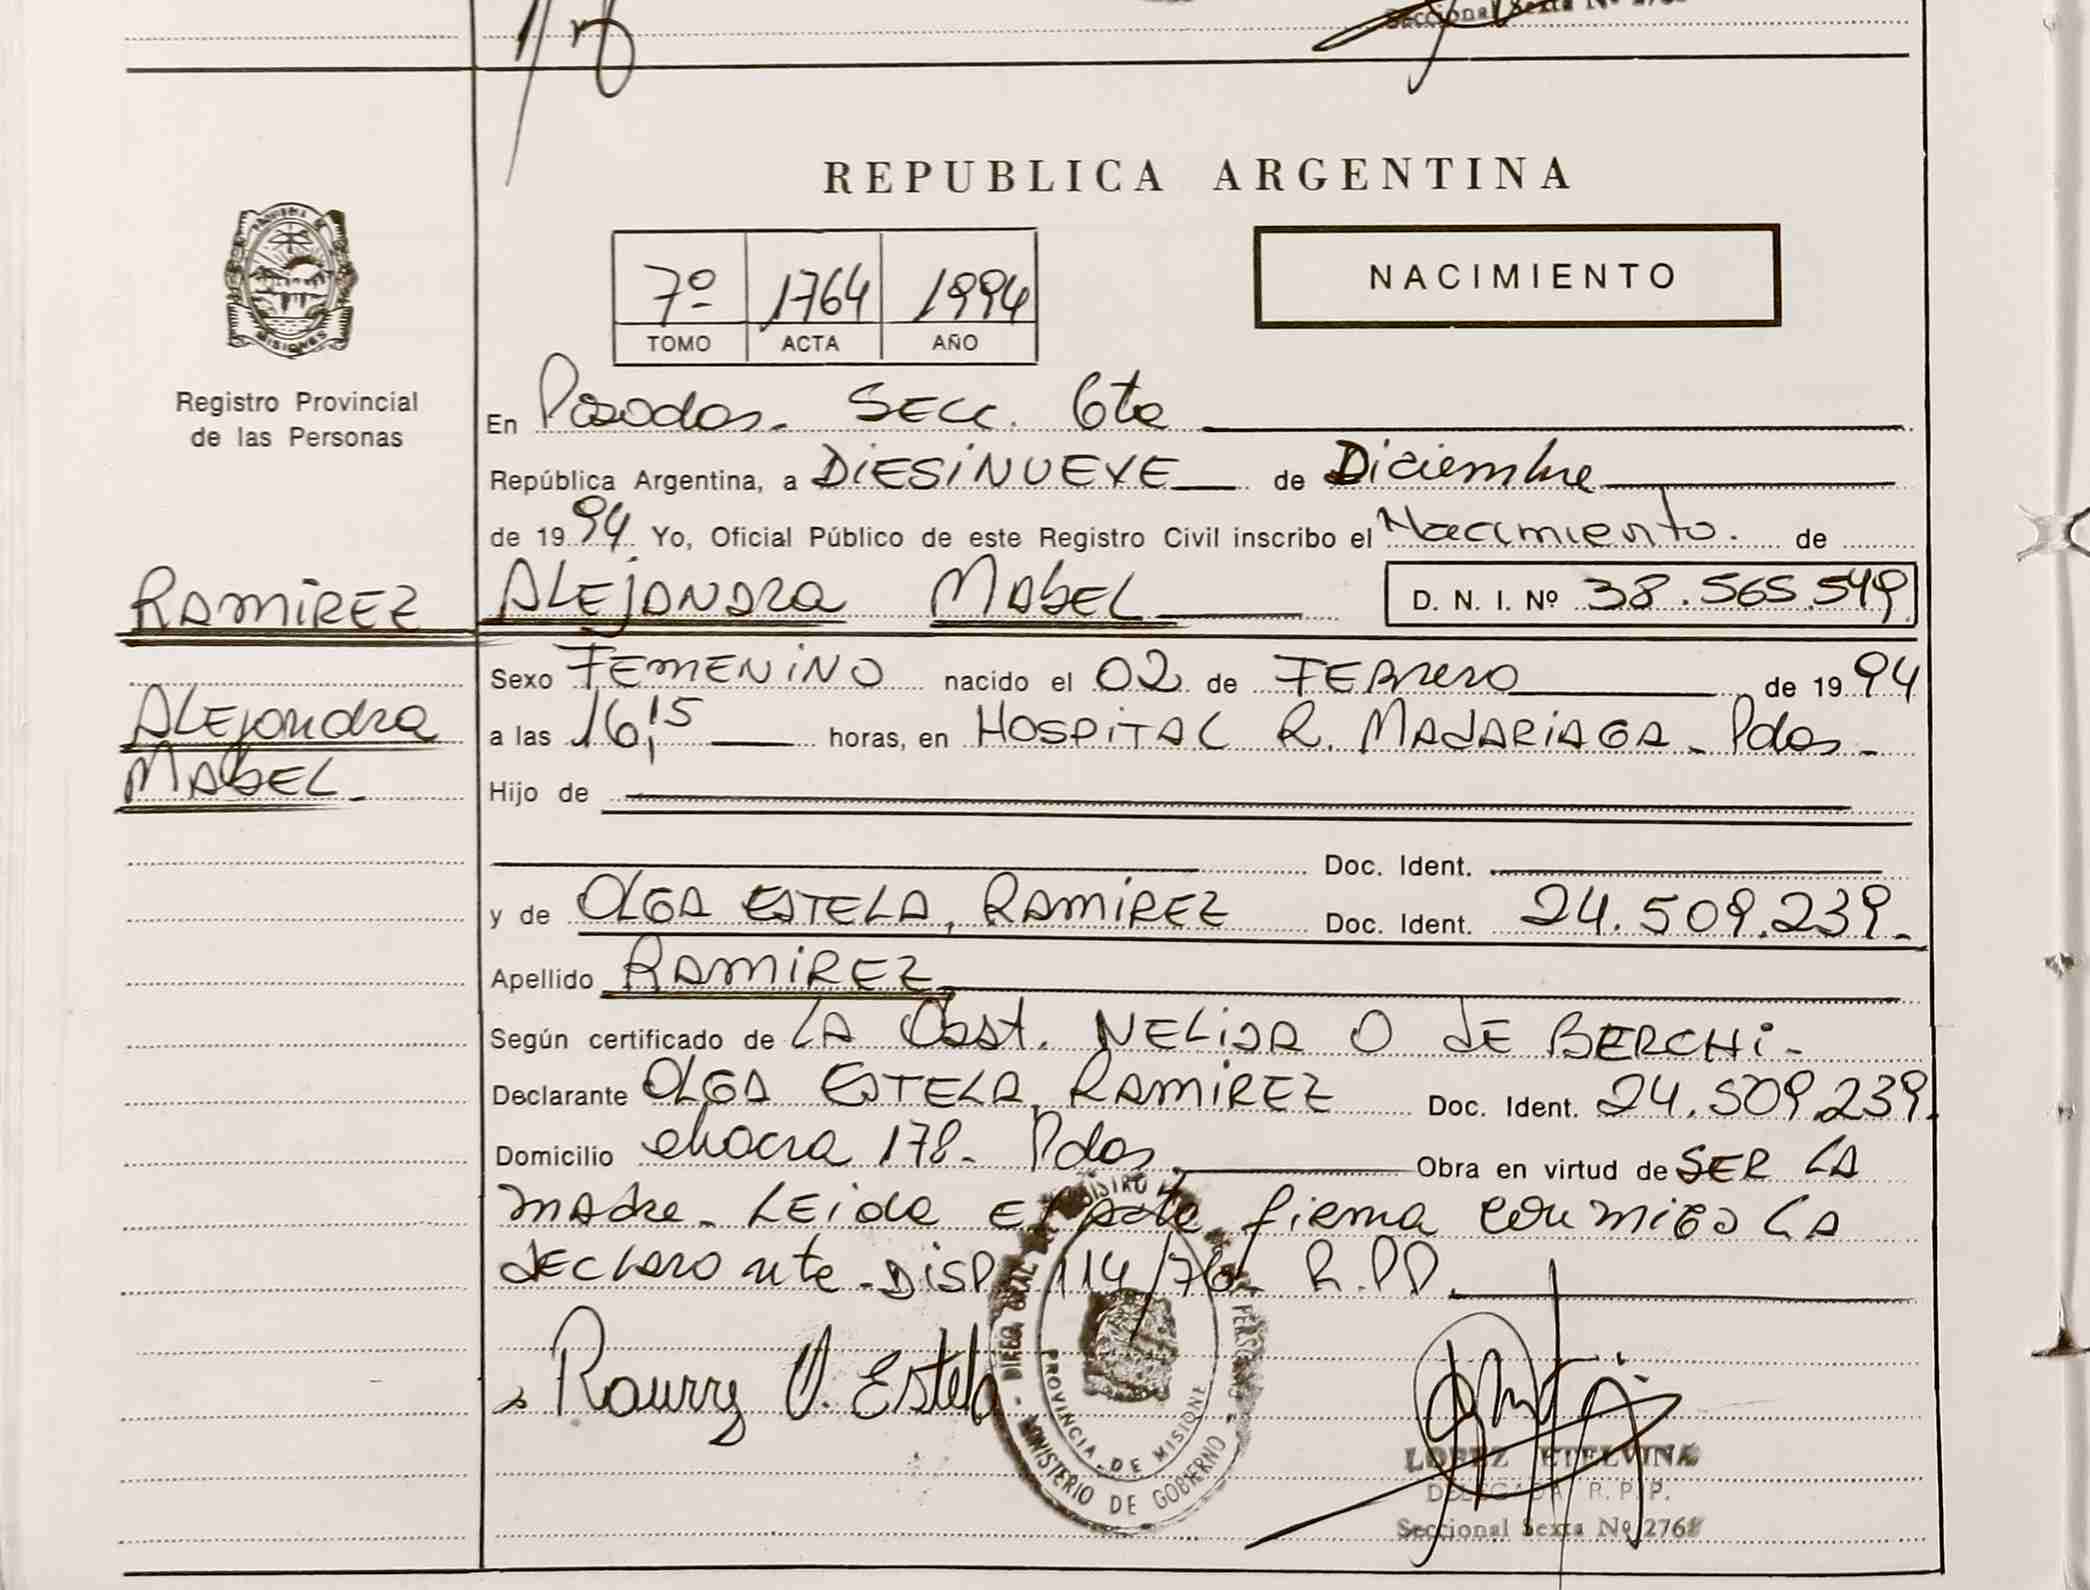 Seccional Sexta Nº 276
REPUBLICA ARGENTINA
PROVINCIA DE
MISIONES
7º 1764 1994
TOMO ACTA AÑO
NACIMIENTO
Registro Provincial
de las Personas
En Posadas. SECC. 6ta
República Argentina, a DIESINUEVE de Diciembre
de 1994 Yo, Oficial Público de este Registro Civil inscribo el Nacimiento. de
RAMIREZ
ALEJANDRA MABEL D. N. I. Nº 38.565.549
Sexo FEMENINO nacido el 02 de FEBRERO de 1994
ALEJANDRA
MABEL.
a las 16,15 horas, en HOSPITAL R. MADARIAGA. Pdas.
Hijo de
Doc. Ident.
y de OLGA ESTELA, RAMIREZ Doc. Ident. 24.509.239.
Apellido RAMIREZ
Según certificado de LA Obst. NELIDA O dE BERCHI.
Declarante OLGA ESTELA, RAMIREZ Doc. Ident. 24.509.239.
Domicilio chacra 178. Pdas. Obra en virtud de SER LA
madre. LEida El Acta, firma conmigo LA
dECLARAnte. DISP. 114/76 R.PP.
Ramirez O. Estela
MINISTERIO DE GOBIERNO
PROVINCIA DE MISIONES
LOPEZ ETELVINA
DELEGADA R. P. P.
Seccional Sexta Nº 276